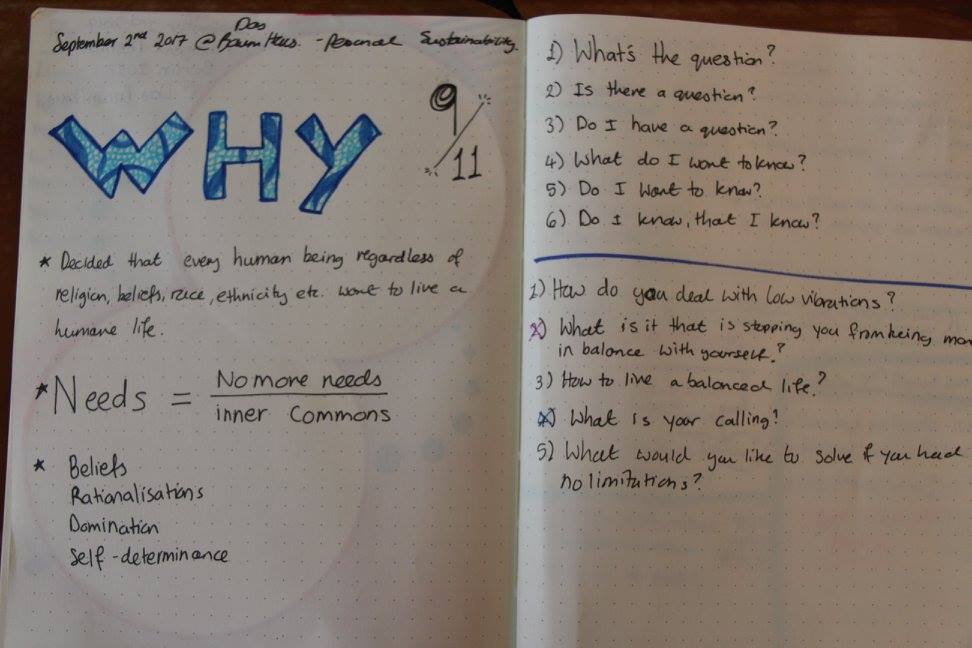 Das
September 2nd 2017 @ Baum Haus. - Personal Sustainability.
WHY
9/11
* Decided that every human being regardless of
religion, beliefs, race, ethnicity etc. want to live a
humane life.
* Needs = No more needs
inner Commons
* Beliefs
Rationalisations
Domination
Self-determinance
1) What's the question?
2) Is there a question?
3) Do I have a question?
4) What do I want to know?
5) Do I want to know?
6) Do I know, that I know?
1) How do you deal with low vibrations?
2) What is it that is stopping you from being mor
in balance with yourself?
3) How to live a balanced life?
4) What is your calling?
5) What would you like to solve if you had
no limitations?